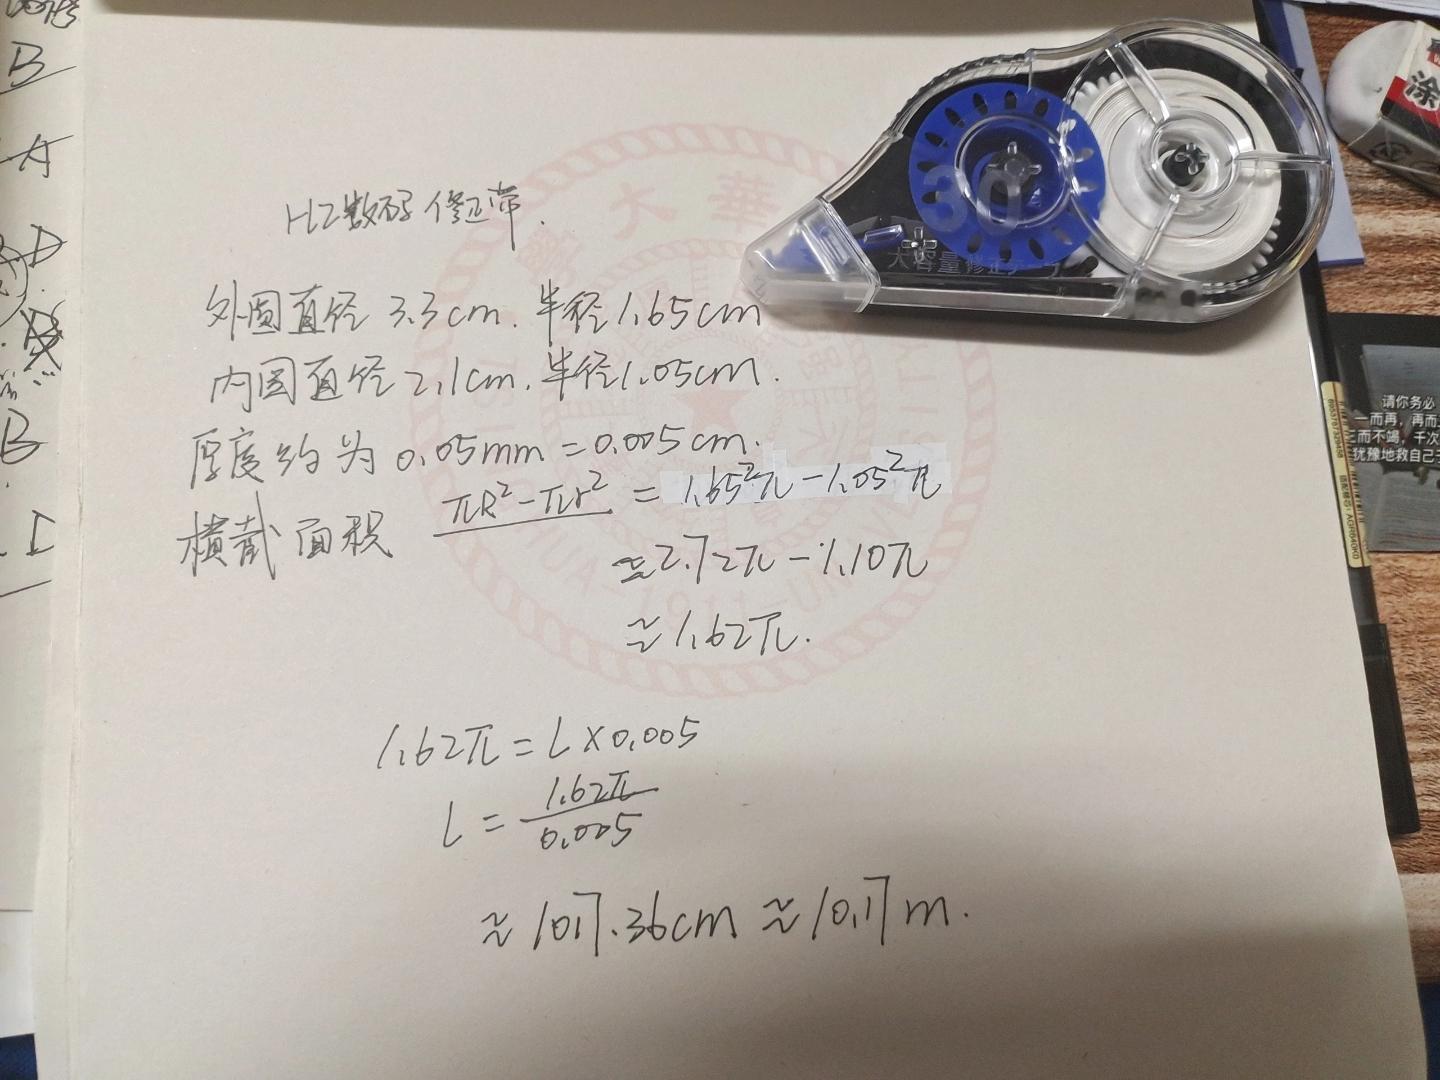 B
A
D
B
I
HZ数码修正带.
外圆直径3.3cm.半径1.65cm
内圆直径2.1cm.半径1.05cm.
厚度约为0.05mm=0.005cm.
横截面积 πR²-πr² = 1.65²π-1.05²π
≈2.72π-1.10π
≈1.62π.
1.62π=L×0.005
L=1.62π/0.005
≈1017.36cm≈10.17m.
30
大容量修正
大華
1911
涂
请你务必
一而再,再而三
三而不竭,千次
犹豫地救自己于